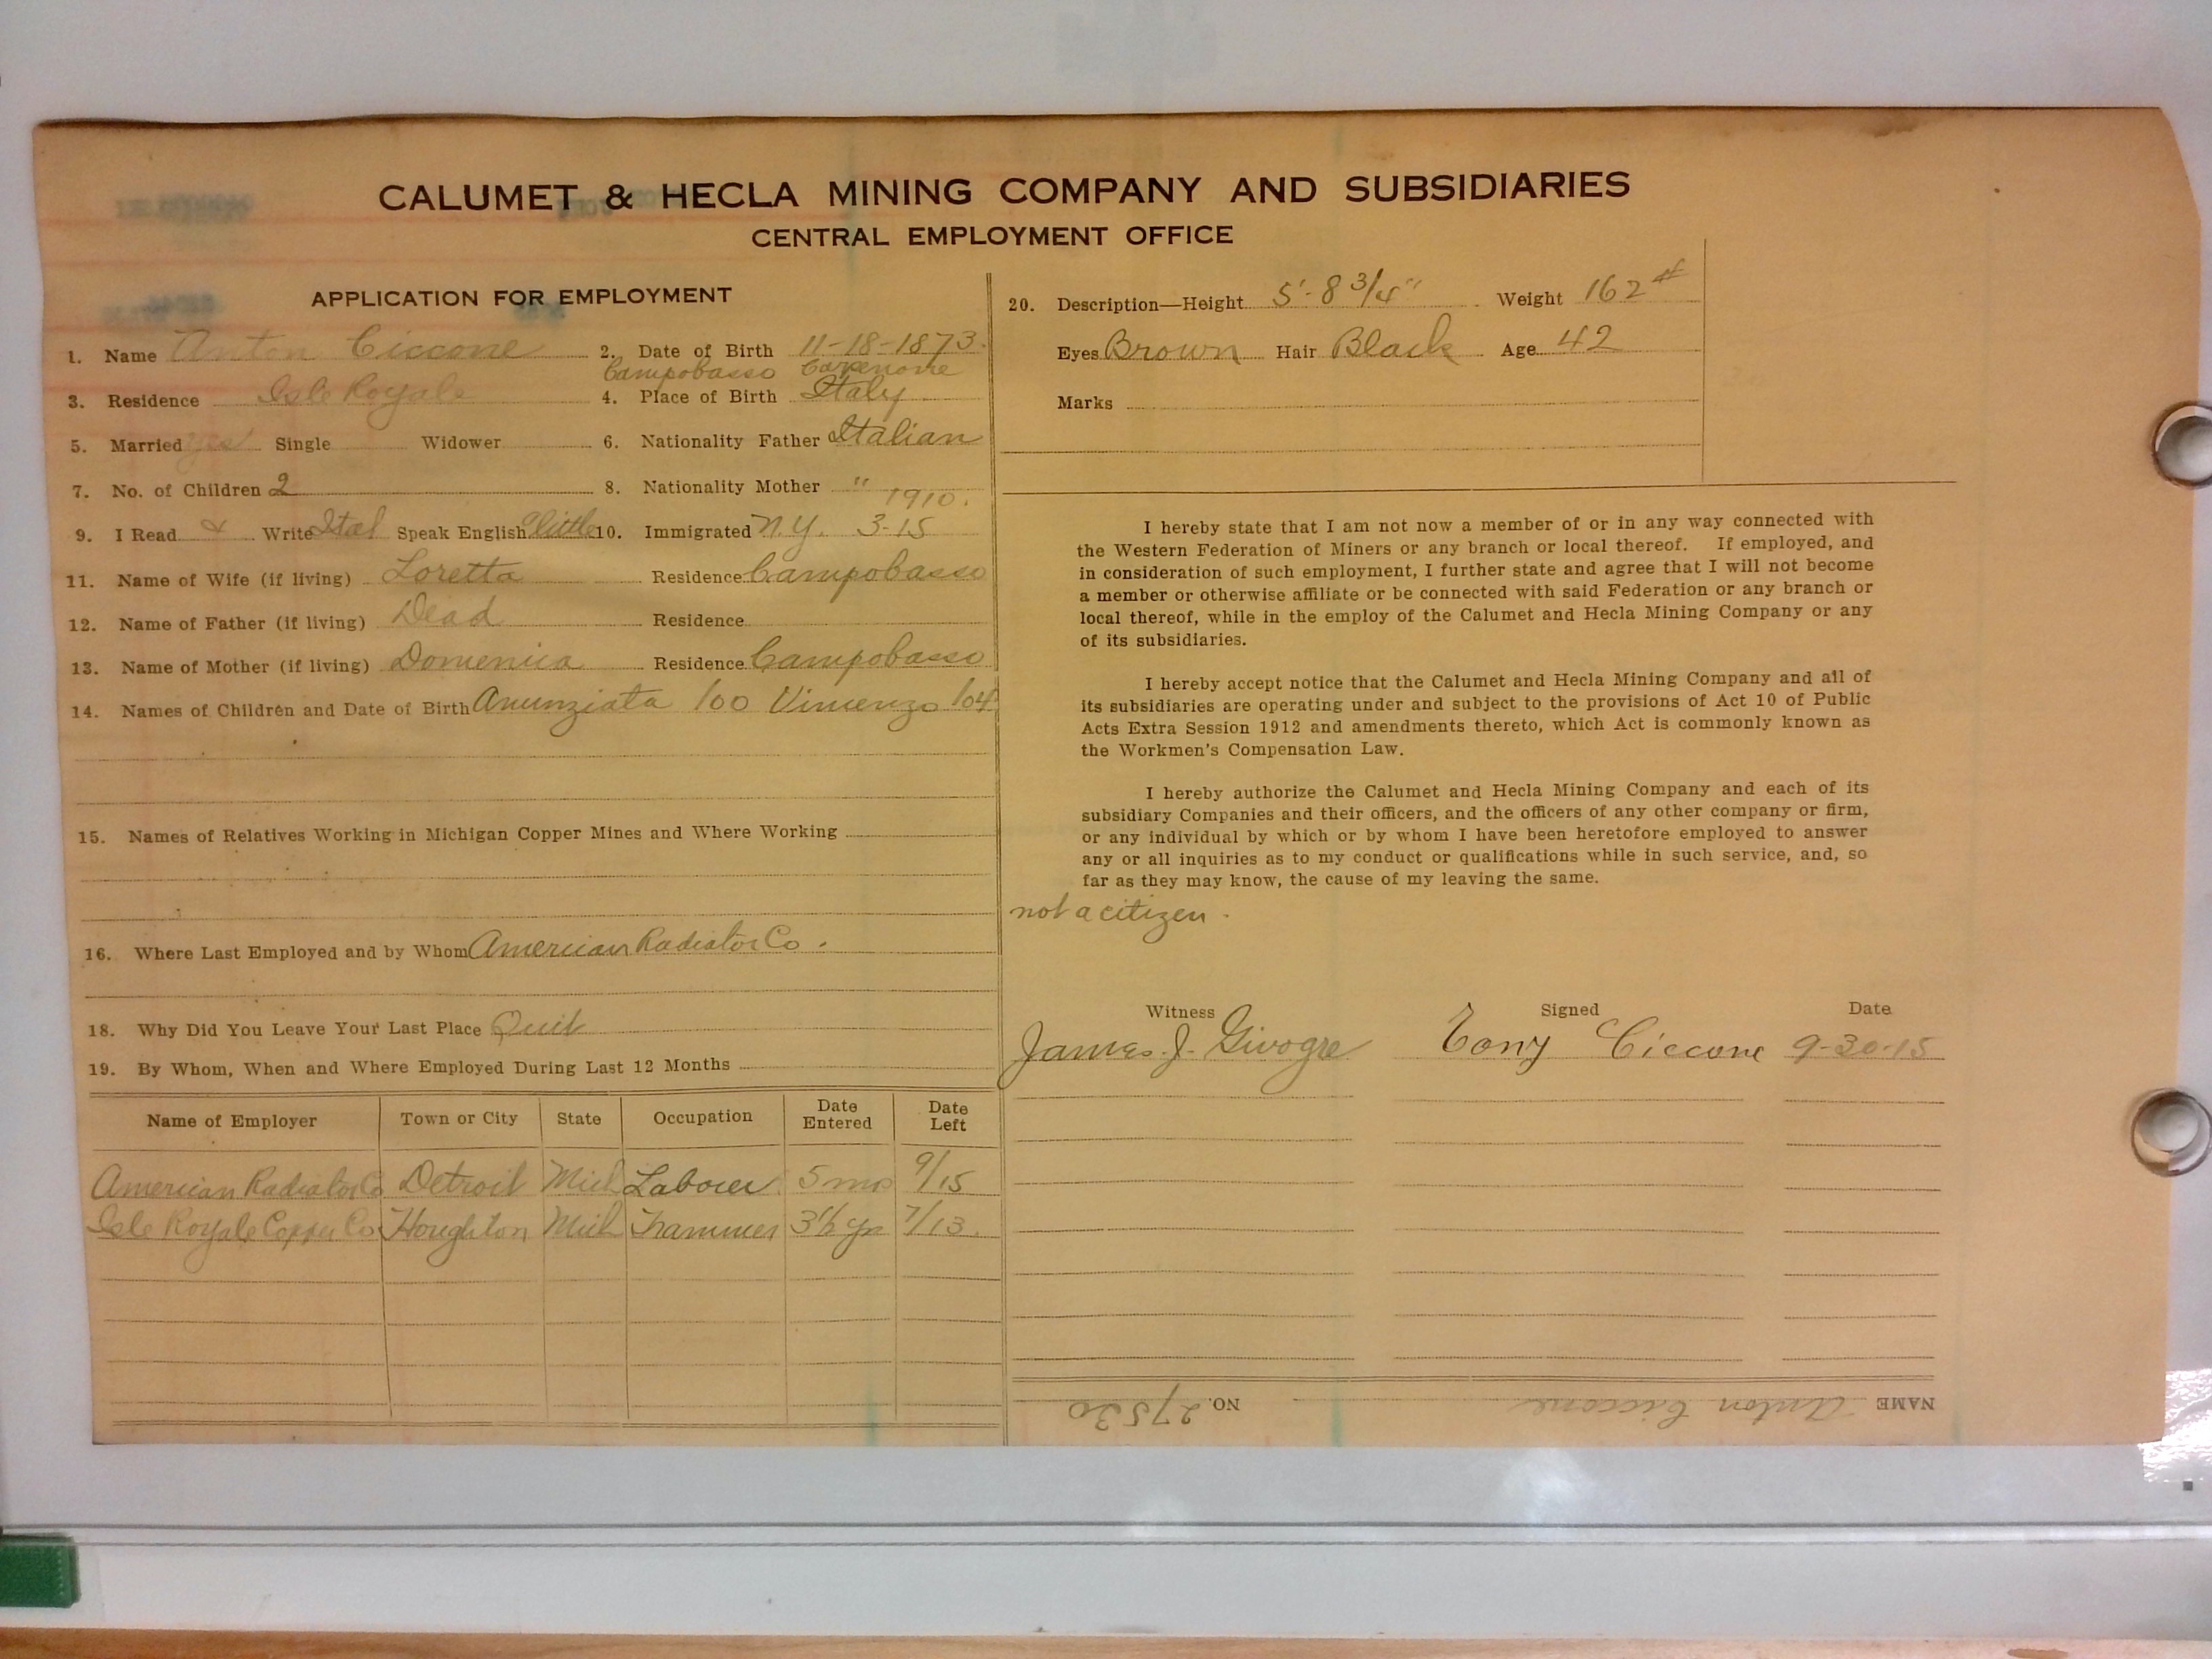 CALUMET & HECLA MINING COMPANY AND SUBSIDIARIES
CENTRAL EMPLOYMENT OFFICE
APPLICATION FOR EMPLOYMENT
1. Name Anton Ciccone 2. Date of Birth 11-18-1873.
Campobasso
3. Residence Isle Royale 4. Place of Birth Italy
5. Married yes Single Widower 6. Nationality Father Italian
7. No. of Children 2 8. Nationality Mother "
1910.
9. I Read & Write Ital Speak English little 10. Immigrated N.Y. 3-15
11. Name of Wife (if living) Loretta Residence Campobasso
12. Name of Father (if living) Dead Residence
13. Name of Mother (if living) Domenica Residence Campobasso
14. Names of Children and Date of Birth Anunziata /00 Vincenzo /04
15. Names of Relatives Working in Michigan Copper Mines and Where Working
16. Where Last Employed and by Whom American Radiator Co.
18. Why Did You Leave Your Last Place Quit
19. By Whom, When and Where Employed During Last 12 Months
Name of Employer Town or City State Occupation Date Entered Date Left
American Radiator Co Detroit Mich Laborer 5 mos 9/15
Isle Royale Copper Co Houghton Mich Trammer 3½ yr 7/13.
20. Description—Height 5'-8 3/4" Weight 162#
Eyes Brown Hair Black Age 42
Marks
I hereby state that I am not now a member of or in any way connected with
the Western Federation of Miners or any branch or local thereof. If employed, and
in consideration of such employment, I further state and agree that I will not become
a member or otherwise affiliate or be connected with said Federation or any branch or
local thereof, while in the employ of the Calumet and Hecla Mining Company or any
of its subsidiaries.
I hereby accept notice that the Calumet and Hecla Mining Company and all of
its subsidiaries are operating under and subject to the provisions of Act 10 of Public
Acts Extra Session 1912 and amendments thereto, which Act is commonly known as
the Workmen's Compensation Law.
I hereby authorize the Calumet and Hecla Mining Company and each of its
subsidiary Companies and their officers, and the officers of any other company or firm,
or any individual by which or by whom I have been heretofore employed to answer
any or all inquiries as to my conduct or qualifications while in such service, and, so
far as they may know, the cause of my leaving the same.
not a citizen.
Witness Signed Date
James J. Givogre Tony Ciccone 9-30-15
NAME Anton Ciccone NO. 27530